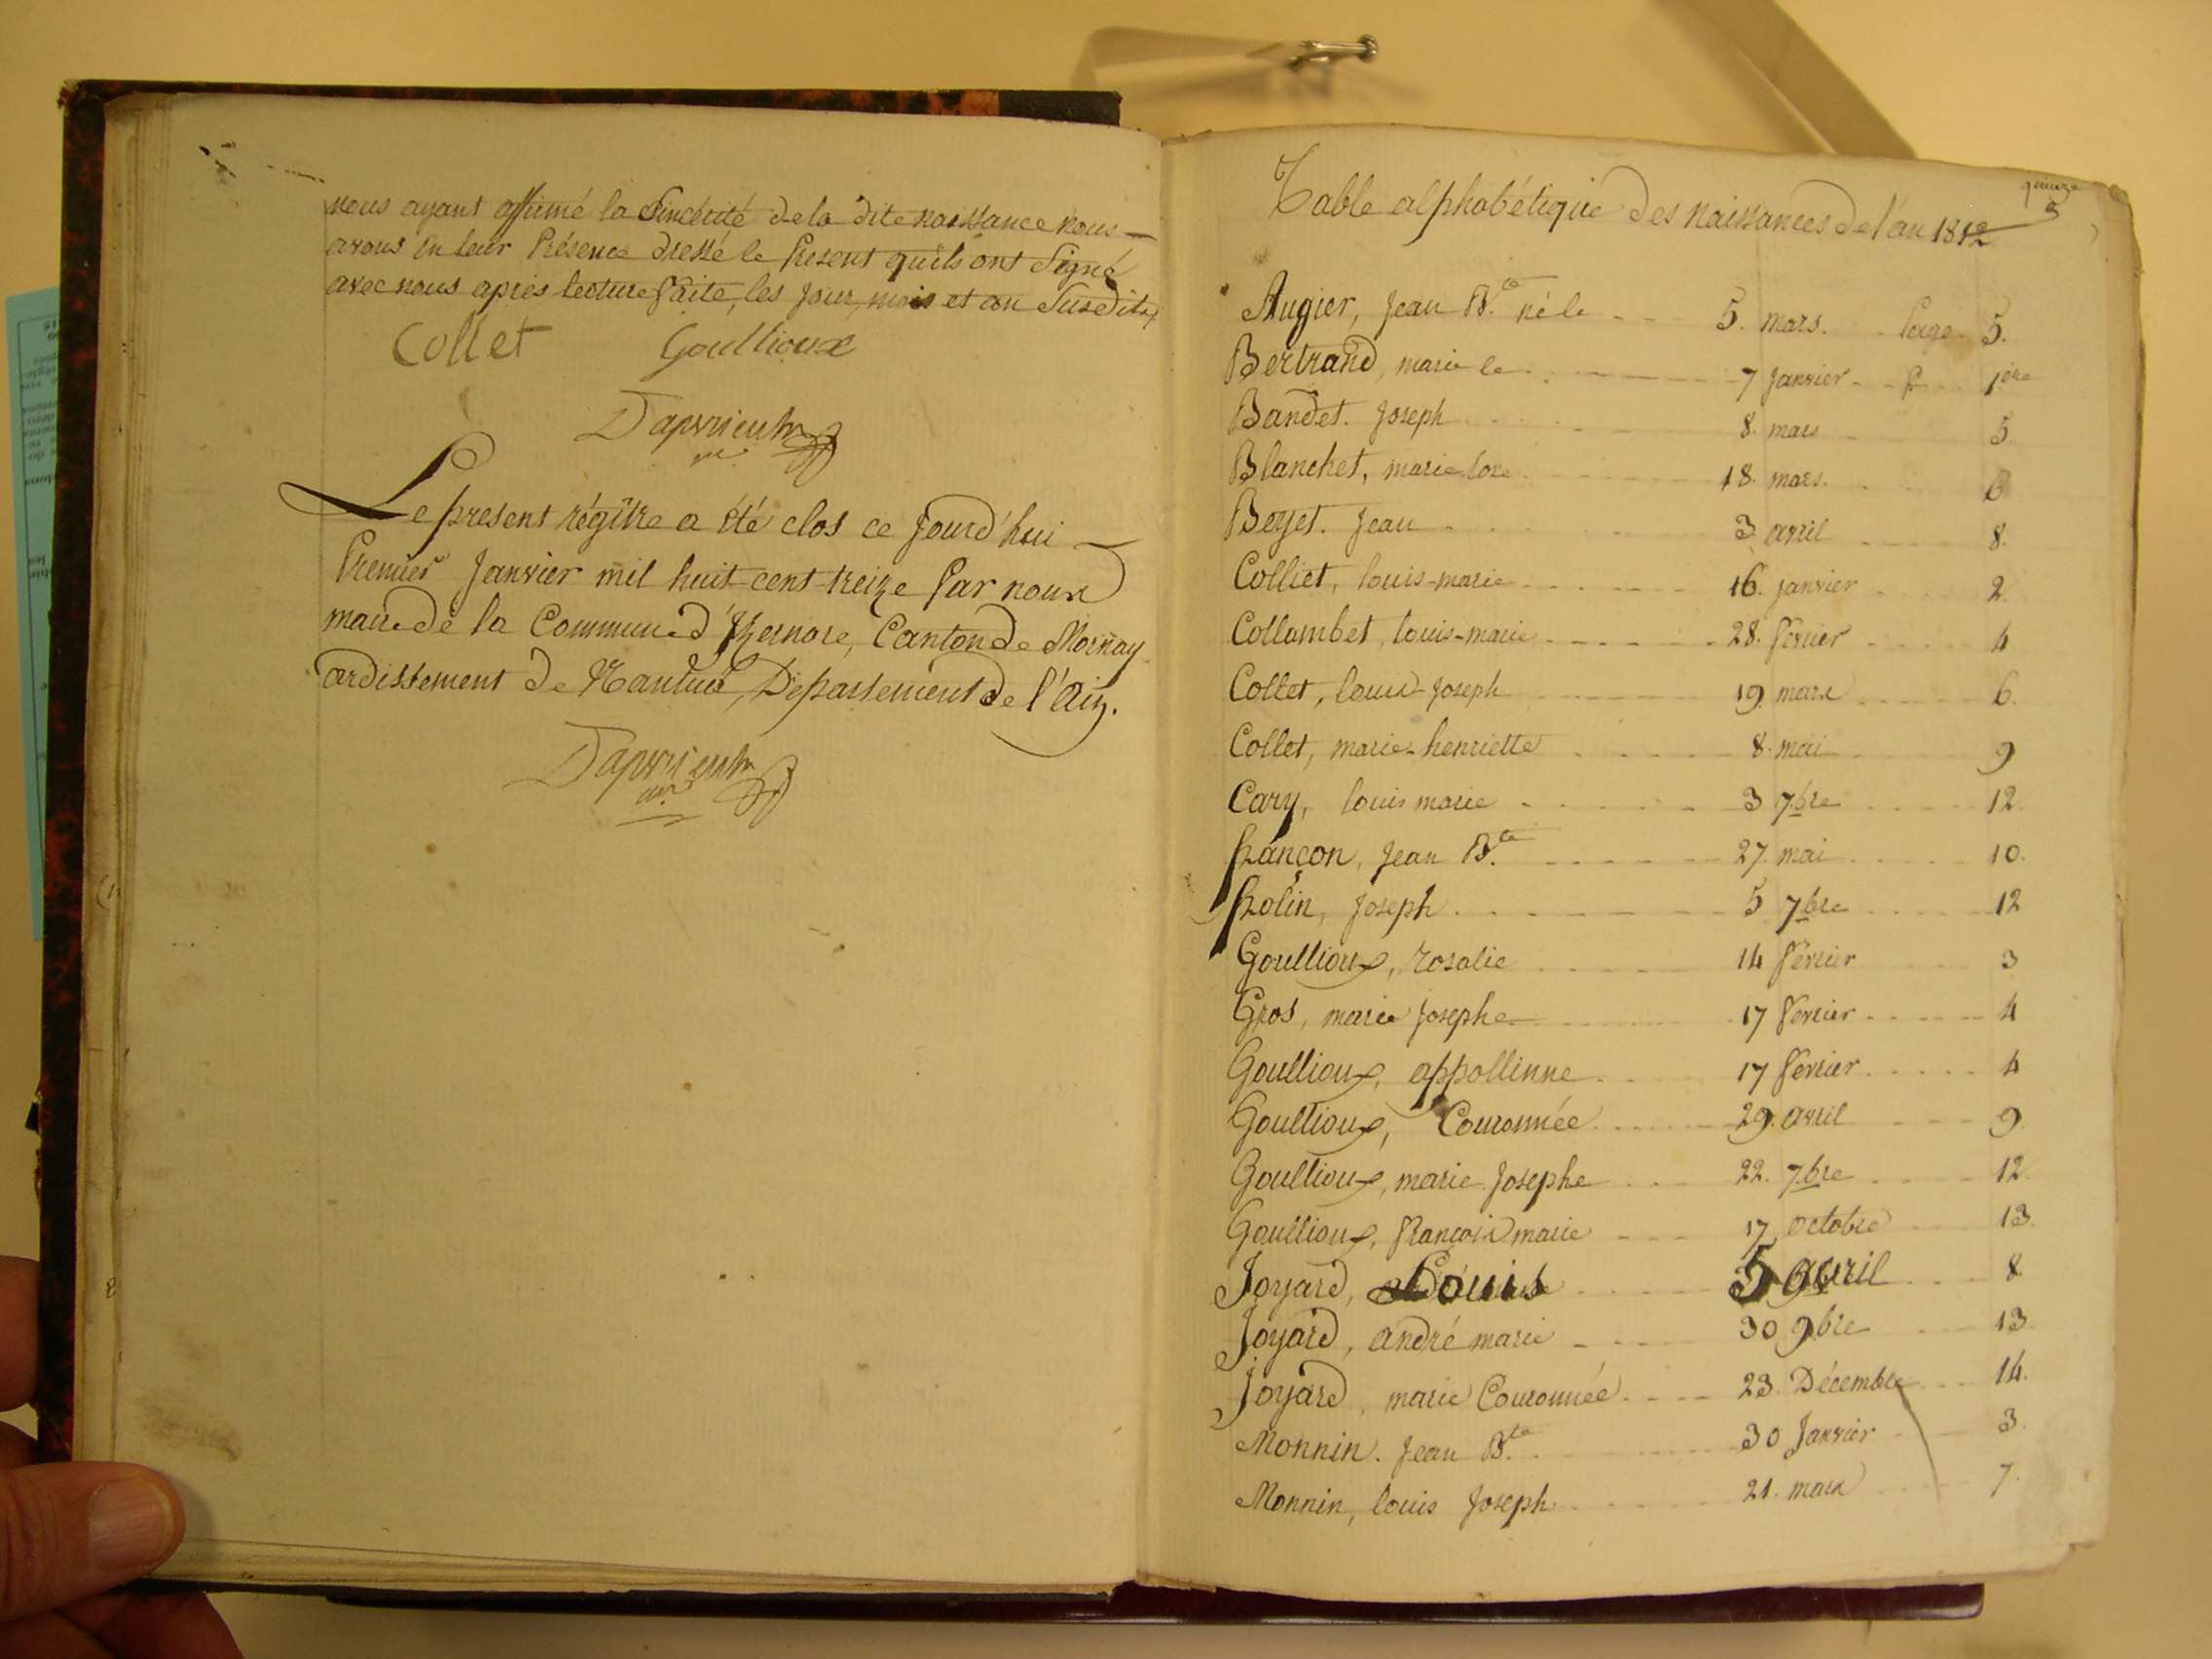 nous ayant affirmé la Sincérité de la dite naissance nous
avons en leur Présence dressé le Present qu'ils ont Signé
avec nous après lecture faite, les jour, mois et an Susdits
Collet Goullioux
Le present régitre a été clos ce jourd'hui
Premier Janvier mil huit cent treize Par nous
maire de la Commune d'Izernore, Canton de Mornay
ardissement de Nantua, Département de l'Ain.
quinze
Table alphabétique des naissances de l'an 1812
Augier, Jean B.te né le 5. mars. Page 5.
Bertrand, marie le 7 Janvier P 1ere
Bandet. Joseph 8. mars 5
Blanchet, marie 18. mars. 6
Beyet. Jean 3 avril 8.
Colliet, louis-marie 16. janvier 2.
Collombet, louis-marie 28. fevrier 4
Collet, louis-joseph 19 mars 6.
Collet, marie-henriette 8. mai 9
Cary, louis marie 3 7bre 12.
françon, Jean B.te 27. mai 10.
frolin, Joseph 5 7bre 12
Goullioux, rosalie 14 fevrier 3
Gros, marie Josephe 17 fevrier 4
Goullioux, appollinne 17 fevrier 4
Goullioux, Couronnée 29. avril 9.
Goullioux, marie Josephe 22. 7bre 12.
Goullioux, françois marie 17 octobre 13.
Joyard, Louis 5 avril 8.
Joyard, andré marie 30 9bre 13.
Joyard, marie Couronnée 23. Décembre 14.
Monnin. Jean B.te 30 Janvier 3.
Monnin, louis Joseph 21. mars 7.